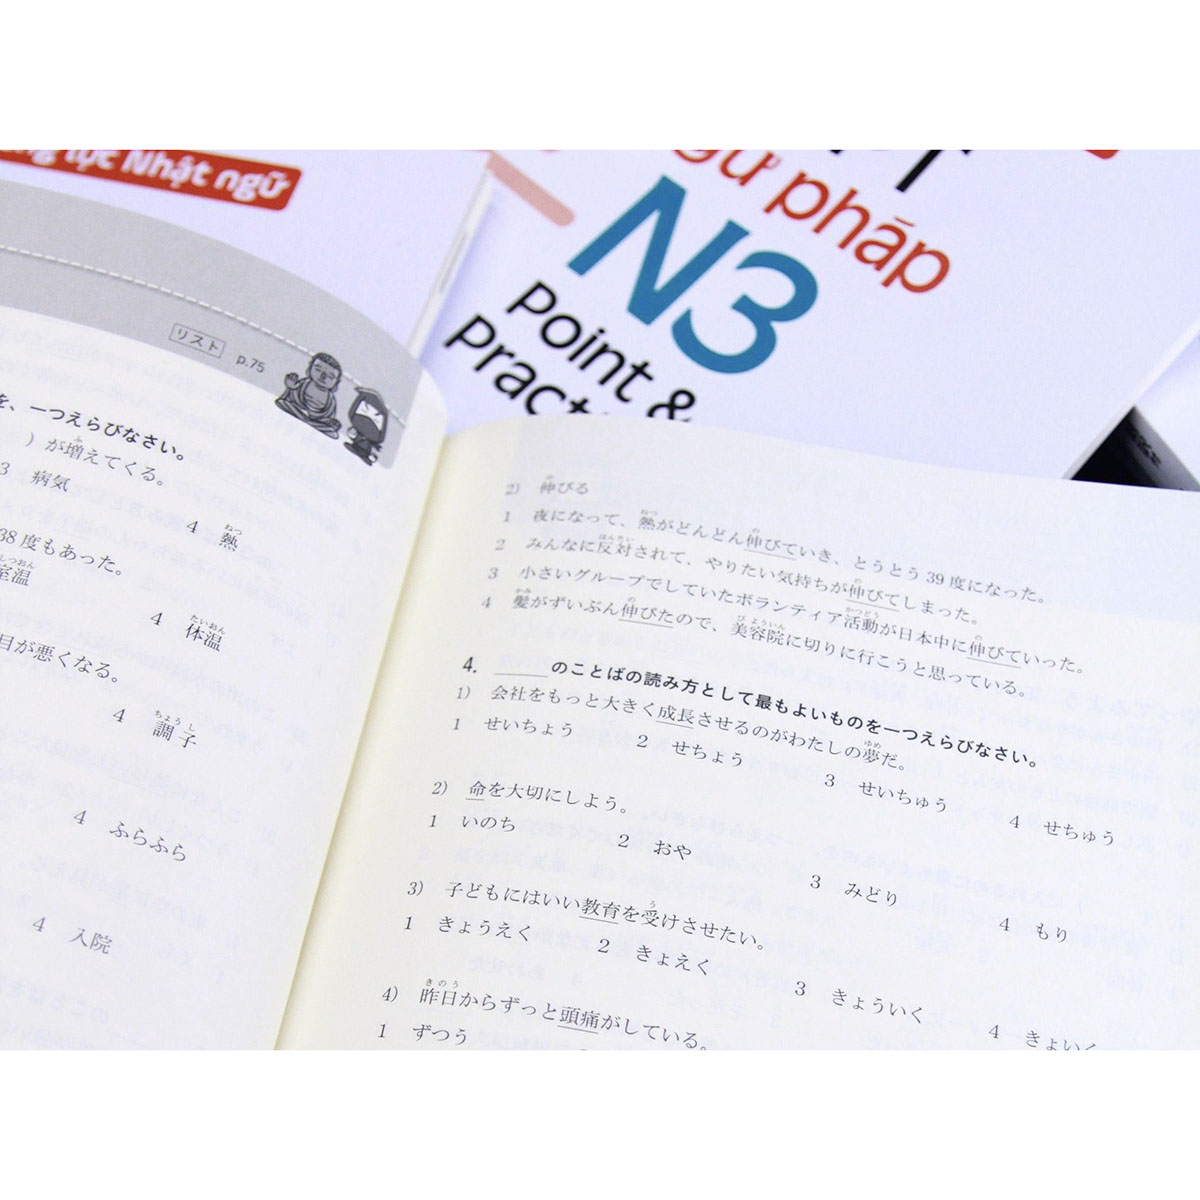 lực Nhật ngữ
ngữ pháp
N3
Point &
Pract
リスト p.75
を、一つえらびなさい。
）が増えてくる。
3 病気
4 熱
38度もあった。
室温
4 体温
目が悪くなる。
4 調子
4 ふらふら
4 入院
2) 伸びる
1 夜になって、熱がどんどん伸びていき、とうとう39度になった。
2 みんなに反対されて、やりたい気持ちが伸びてしまった。
3 小さいグループでしていたボランティア活動が日本中に伸びていった。
4 髪がずいぶん伸びたので、美容院に切りに行こうと思っている。
4. ＿＿＿のことばの読み方として最もよいものを一つえらびなさい。
1) 会社をもっと大きく成長させるのがわたしの夢だ。
1 せいちょう 2 せちょう 3 せいちゅう 4 せちゅう
2) 命を大切にしよう。
1 いのち 2 おや 3 みどり 4 もり
3) 子どもにはいい教育を受けさせたい。
1 きょうえく 2 きょえく 3 きょういく 4 きょいく
4) 昨日からずっと頭痛がしている。
1 ずつう